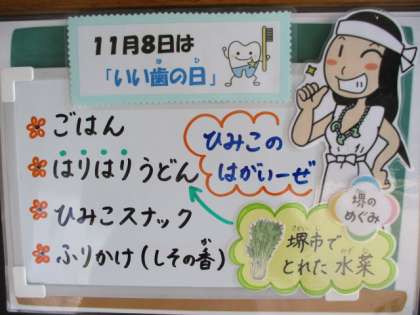 11月8日は
「いい歯の日」
ごはん
はりはりうどん
ひみこスナック
ふりかけ(しその香)
ひみこの
はがいーぜ
堺の
めぐみ
堺市で
とれた水菜